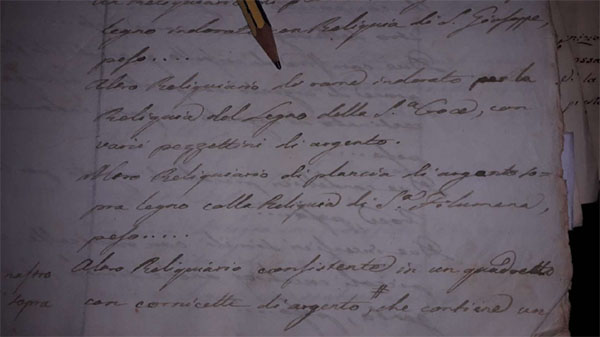 un Reliquia
legno indorato con Reliquia di S. Giuseppe,
peso.....
Altro Reliquiario di rame indorato per la
Reliquia del Legno della S.ª Croce, con
varii pezzettini di argento.
Altro Reliquiario di plancia di argento so-
pra legno colla Reliquia di S.ª Filumena,
peso.....
Altro Reliquiario consistente in un quadretto
con cornicetta di argento, # che contiene un
nostro
sopra